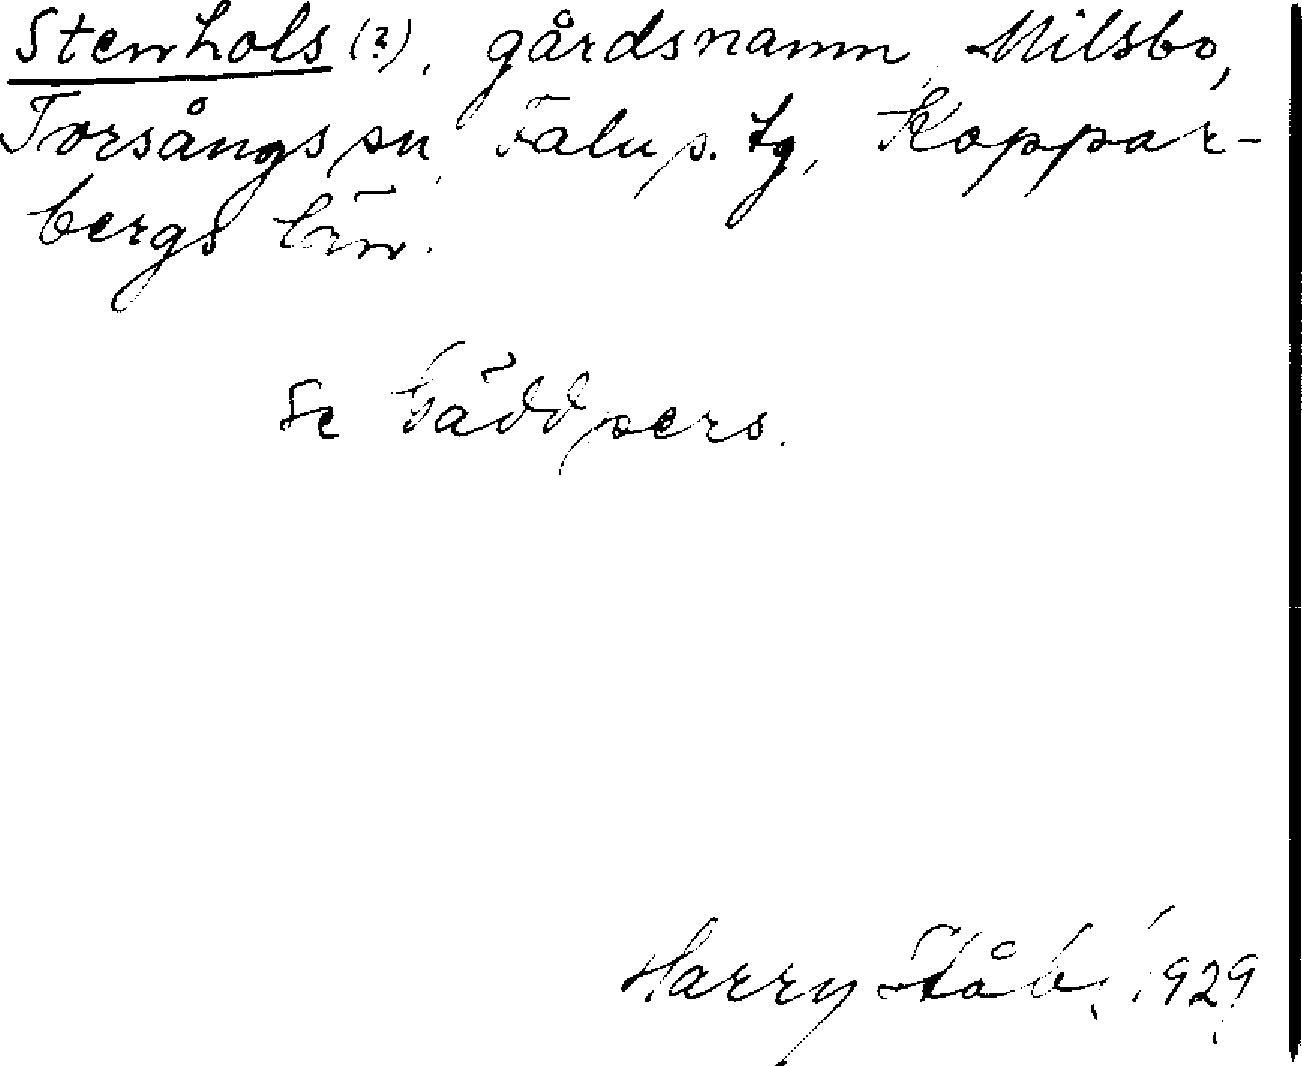 Stenhols (?), gårdsnamn, Milsbo,
Torsångs sn, Falu s. tg, Koppar-
bergs län.
Se Gäddpers.
Harry Ståhl, 1929.